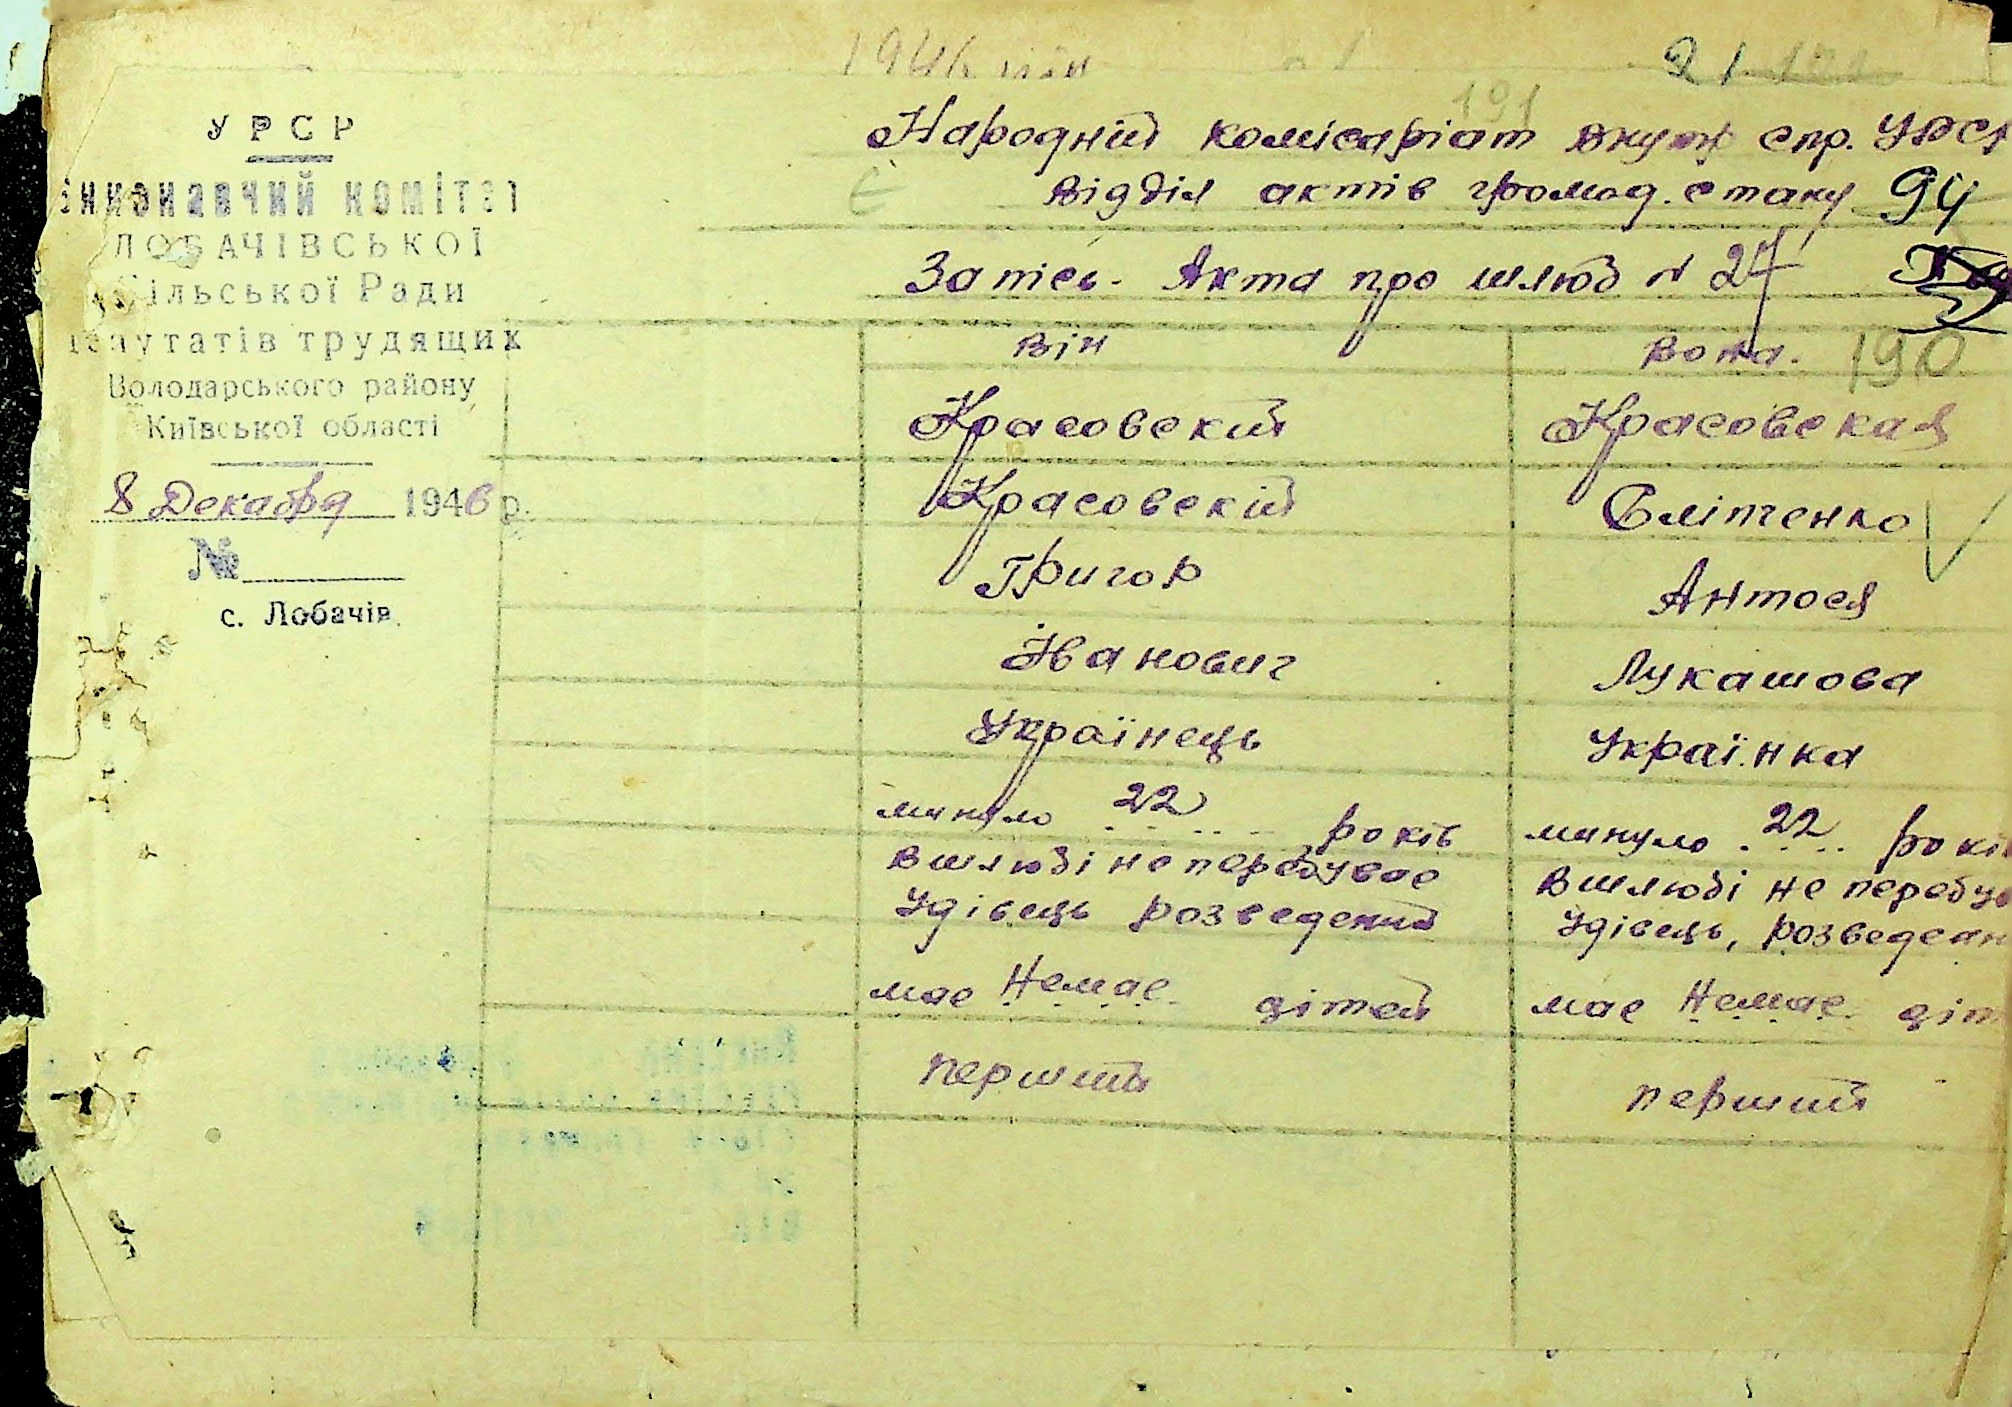 21
191
УРСР
Виконавчий комітет
ЛОБАЧІВСЬКОЇ
Сільської Ради
депутатів трудящих
Володарського району
Київської області
8 Декабря 1946 р.
№
с. Лобачів.
Народній комісаріат внутр спр. УРСР
Відділ актів громад. стану 94
Запісь. Акта про шлюб № 27
Він Вона. 190
Красовский Красовская
Красовскій Єлітенко
Григор Антося
Іванович Лукашова
Українець Українка
минуло 22 років минуло 22 рокі
в шлюбі не перебуває в шлюбі не перебув
Удівець розведений Удівець, розведеан
має Немає дітей має Немає діт
перший перший